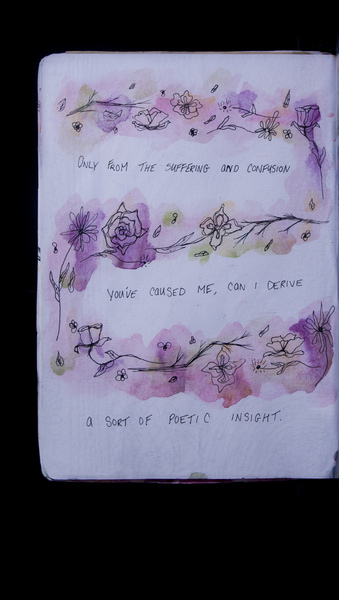 ONLY FROM THE SUFFERING AND CONFUSION
YOU'VE CAUSED ME, CAN I DERIVE
A SORT OF POETIC INSIGHT.